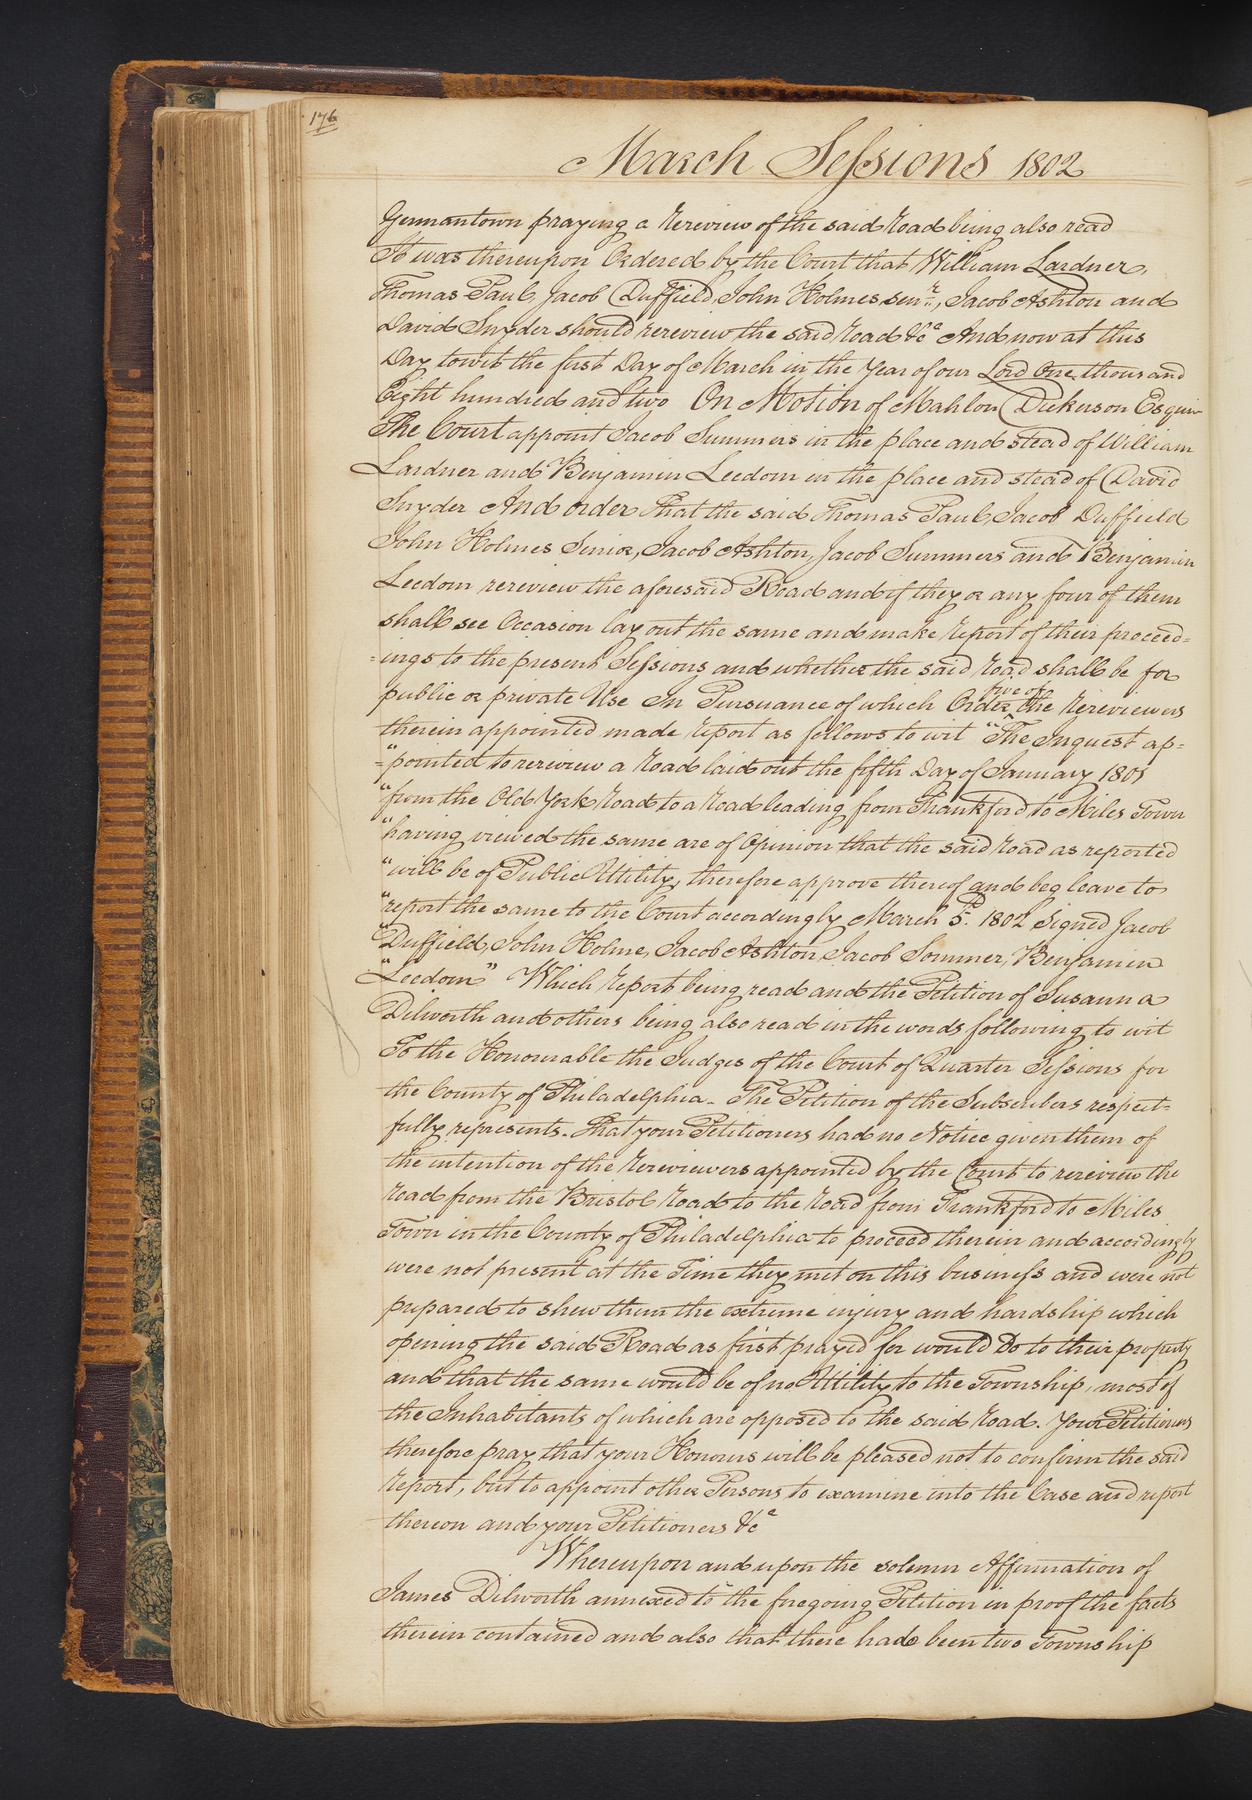 176
March Sessions 1802
Germantown praying a rereview of the said road being also read
It was thereupon Ordered by the Court that William Lardner,
Thomas Paul, Jacob Duffield, John Holmes senr., Jacob Ashton and
David Snyder should rereview the said road &ca And now at this
Day towit the first Day of March in the Year of our Lord One thousand
Eight hundred and two On Motion of Mahlon Dickerson Esquire
The Court appoint Jacob Summers in the place and stead of William
Lardner and Benjamin Leedom in the place and stead of David
Snyder And order That the said Thomas Paul, Jacob Duffield
John Holmes Senior, Jacob Ashton, Jacob Summers and Benjamin
Leedom rereview the aforesaid Road and if they or any four of them
shall see Occasion lay out the same and make report of their proceed=
=ings to the present Sessions and whether the said road shall be for
public or private Use In Pursuance of which Order five of the rereviewers
therein appointed made report as follows to wit "The Inquest ap=
"=pointed to rereview a road laid out the fifth Day of January 1801
"from the Old York Road to a road leading from Frankford to Miles Town
"having viewed the same are of Opinion that the said road as reported
"will be of Public Utility, therefore approve thereof and beg leave to
"report the same to the Court accordingly March 5th. 1802 Signed Jacob
"Duffield, John Holme, Jacob Ashton, Jacob Sommer, Benjamin
"Leedom" Which report being read and the Petition of Susanna
Dilworth and others being also read in the words following to wit
To the Honourable the Judges of the Court of Quarter Sessions for
the County of Philadelphia - The Petition of the Subscribers respect=
fully represents. That your Petitioners had no Notice given them of
the intention of the rereviewers appointed by the Court to rereview the
road from the Bristol road to the road from Frankford to Miles
Town in the County of Philadelphia to proceed therein and accordingly
were not present at the Time they met on this business and were not
prepared to shew them the extreme injury and hardship which
opening the said Road as first prayed for would Do to their property
and that the same would be of no Utility to the Township, most of
the Inhabitants of which are opposed to the said road. Your Petitioners
therefore pray that your Honours will be pleased not to confirm the said
report, but to appoint other Persons to examine into the Case and report
thereon and your Petitioners &ca
Whereupon and upon the solemn Affirmation of
James Dilworth annexed to the foregoing Petition in proof the facts
therein contained and also that there had been two Township